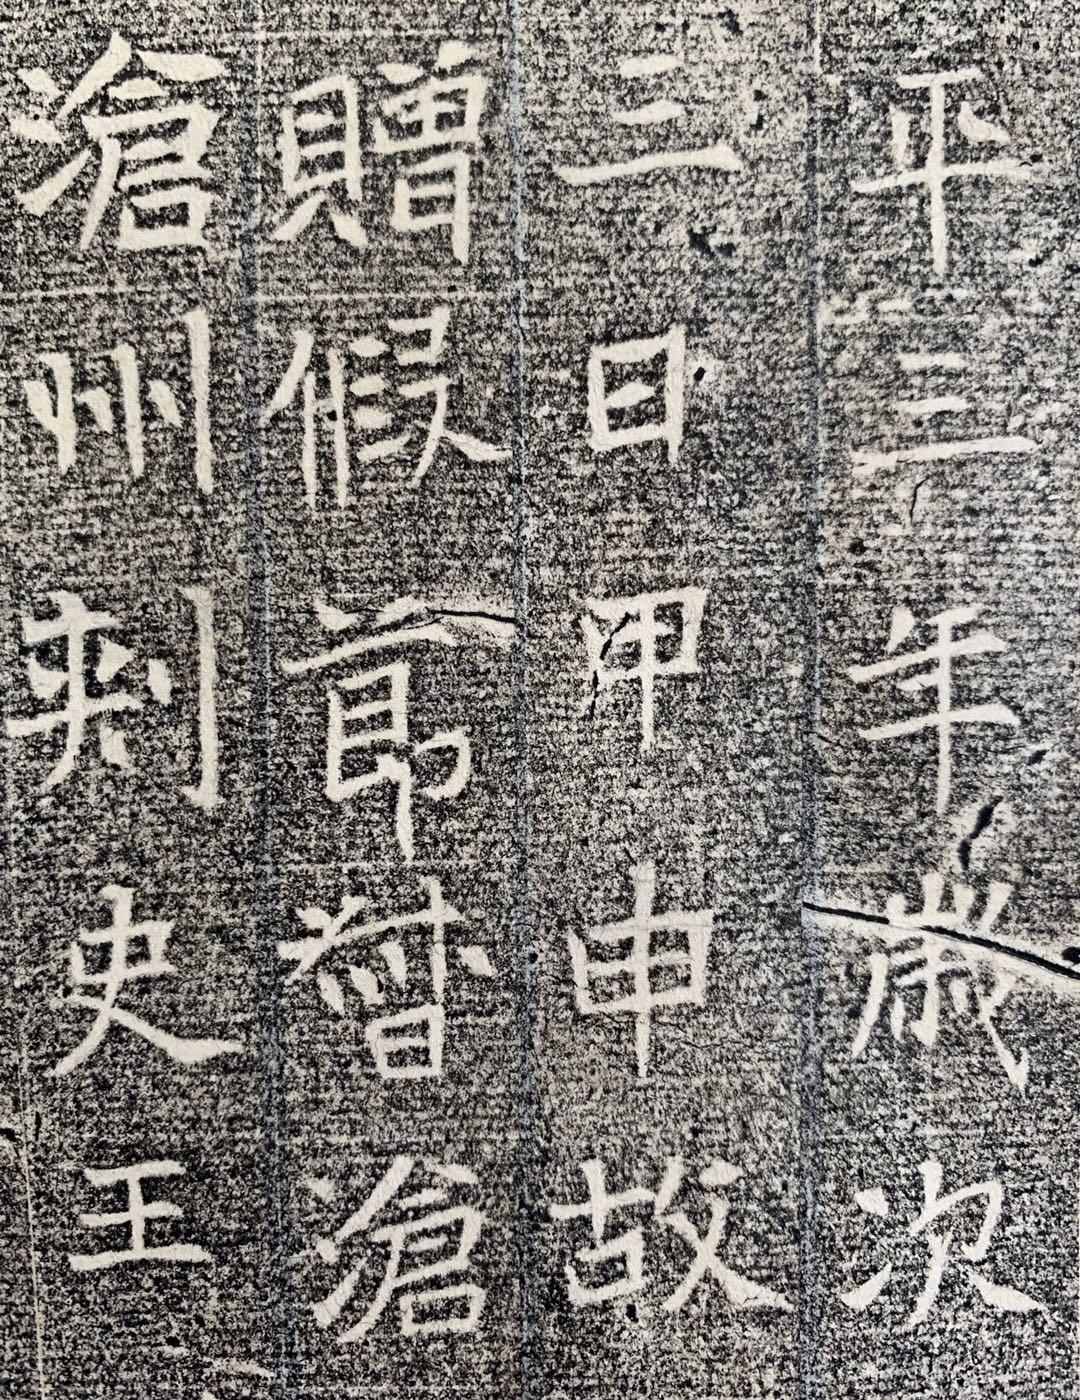 平三年歲次
三日甲申故
贈假節督滄
滄州刺史王